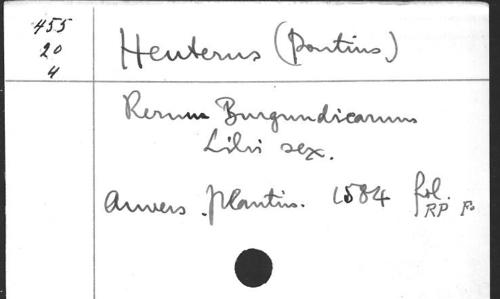 455
20
4
Heuterus (Pontius)
Rerum Burgundicarum
Libri sex.
Anvers. Plantin. 1584 fol.
RP F.